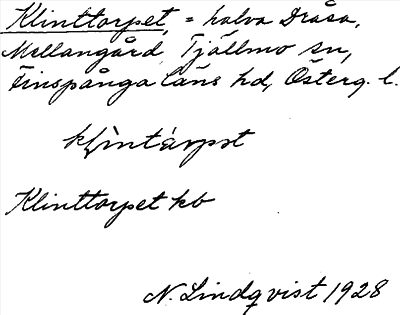 Klinttorpet, = halva Dråsa,
Mellangård, Tjällmo sn,
Finspånga läns hd, Österg. l.
klìntárpət
Klinttorpet kb
N. Lindqvist 1928